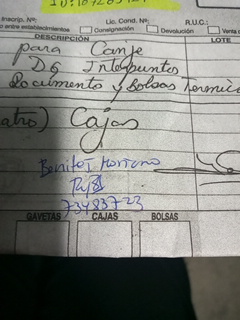 Inscrip. Nº: Lic. Cond. Nº: R.U.C.:
entre establecimientos Consignación Devolución Venta
DESCRIPCIÓN LOTE
para Canje
DG Interpuntos
Documento y Bolsas Termica
atro) Cajas
Benites Moreno
73483723
GAVETAS CAJAS BOLSAS